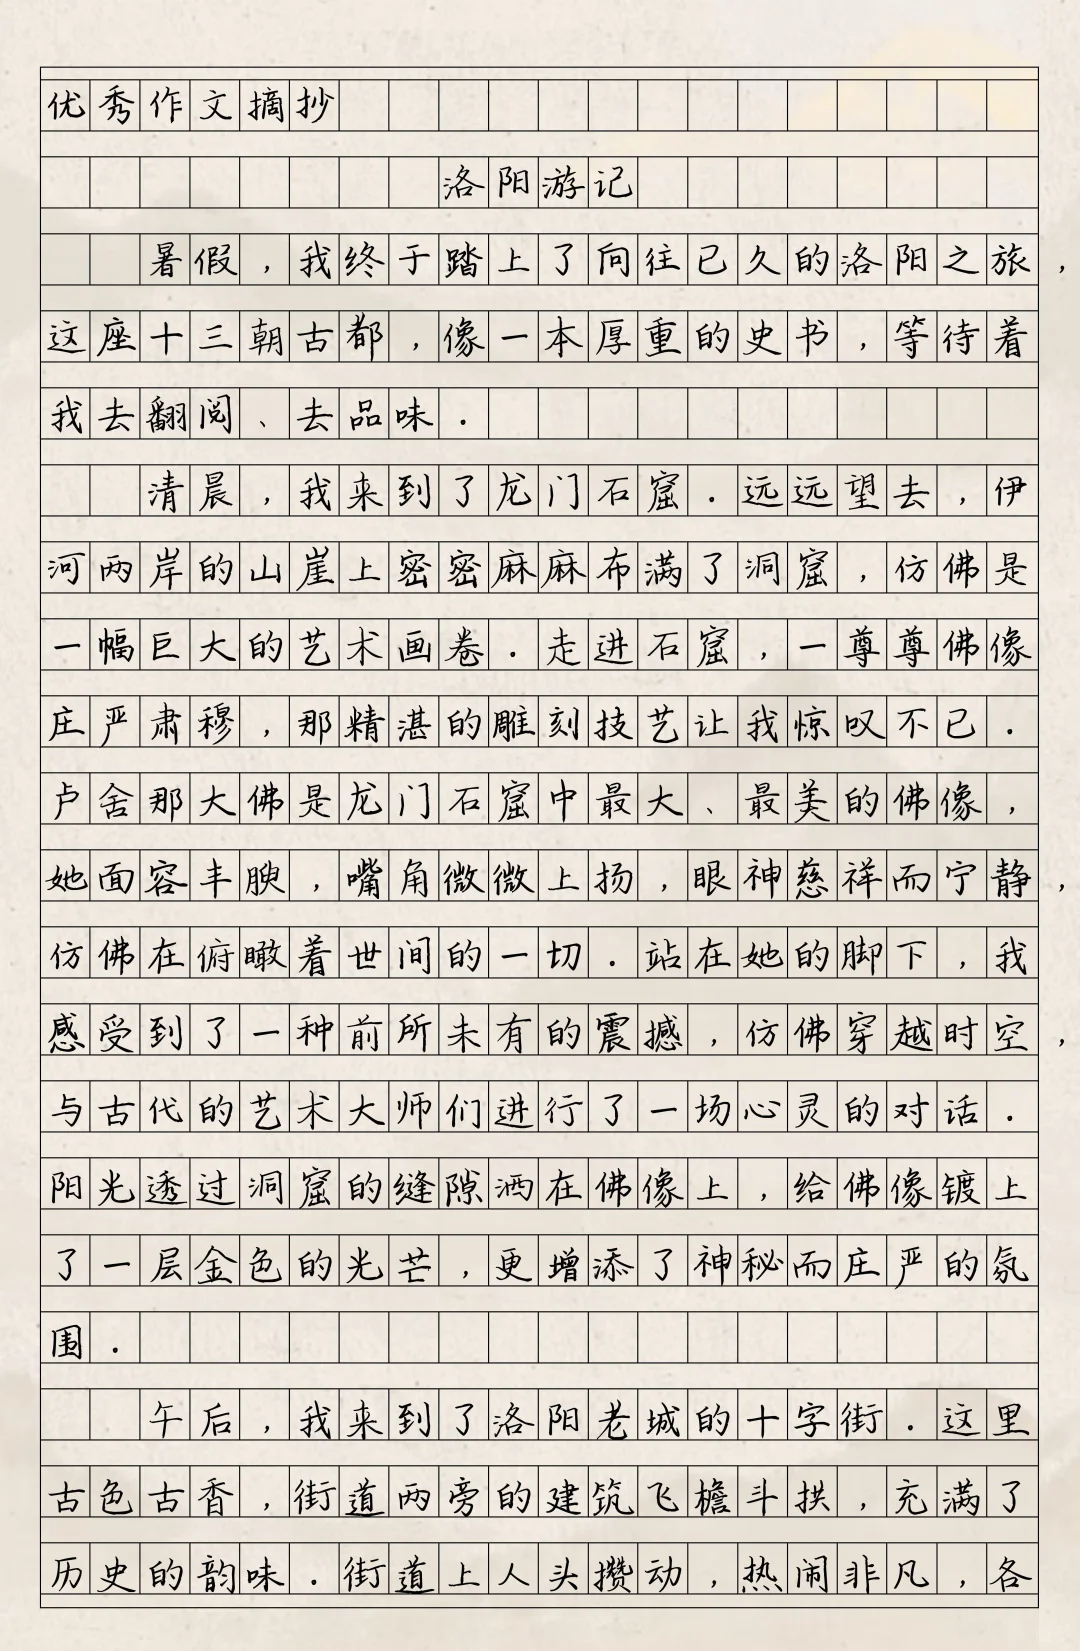 优秀作文摘抄
洛阳游记
暑假，我终于踏上了向往已久的洛阳之旅，
这座十三朝古都，像一本厚重的史书，等待着
我去翻阅、去品味.
清晨，我来到了龙门石窟.远远望去，伊
河两岸的山崖上密密麻麻布满了洞窟，仿佛是
一幅巨大的艺术画卷.走进石窟，一尊尊佛像
庄严肃穆，那精湛的雕刻技艺让我惊叹不已.
卢舍那大佛是龙门石窟中最大、最美的佛像，
她面容丰腴，嘴角微微上扬，眼神慈祥而宁静，
仿佛在俯瞰着世间的一切.站在她的脚下，我
感受到了一种前所未有的震撼，仿佛穿越时空，
与古代的艺术大师们进行了一场心灵的对话.
阳光透过洞窟的缝隙洒在佛像上，给佛像镀上
了一层金色的光芒，更增添了神秘而庄严的氛
围.
午后，我来到了洛阳老城的十字街.这里
古色古香，街道两旁的建筑飞檐斗拱，充满了
历史的韵味.街道上人头攒动，热闹非凡，各